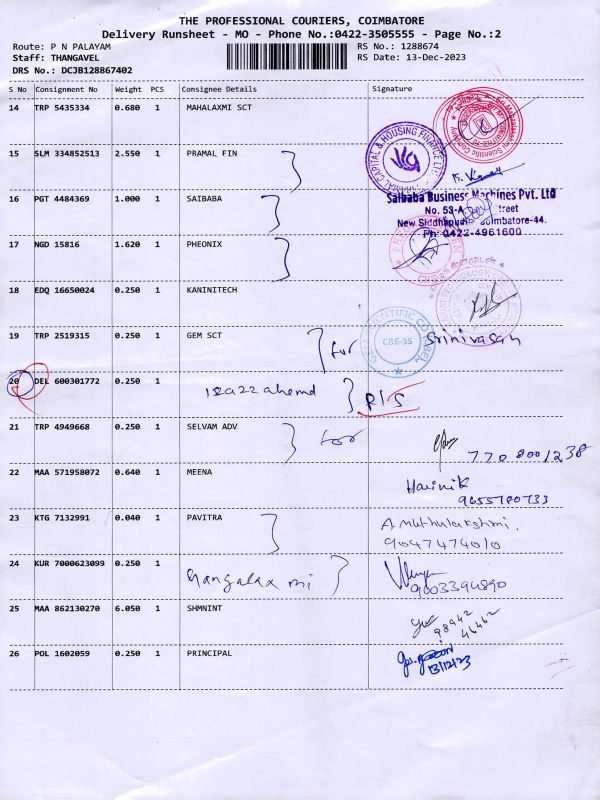 THE PROFESSIONAL COURIERS, COIMBATORE
Delivery Runsheet - MO - Phone No.:0422-3505555 - Page No.:2
Route: P N PALAYAM RS No.: 1288674
Staff: THANGAVEL RS Date: 13-Dec-2023
DRS No.: DCJB128867402
S No Consignment No Weight PCS Consignee Details Signature
14 TRP 5435334 0.680 1 MAHALAXMI SCT
15 SLM 334852513 2.550 1 PRAMAL FIN
CAPITAL & HOUSING FINANCE LTD
16 PGT 4484369 1.000 1 SAIBABA
Saibaba Business Machines Pvt. Ltd
No. 53-A
New Siddhapudur Coimbatore-44.
Ph: 0422-4961600
17 NGD 15816 1.620 1 PHEONIX
18 EDQ 16650024 0.250 1 KANINITECH
19 TRP 2519315 0.250 1 GEM SCT for Srinivasan
CBE-35
20 DEL 600301772 0.250 1 R/S
21 TRP 4949668 0.250 1 SELVAM ADV for
7708001238
22 MAA 571958072 0.640 1 MEENA Harinik
9655780733
23 KTG 7132991 0.040 1 PAVITRA Amuthulakshmi.
9047474010
24 KUR 7000623099 0.250 1
9003394890
25 MAA 862130270 6.050 1 SHMNINT
98942
46462
26 POL 1602059 0.250 1 PRINCIPAL
13/12/23